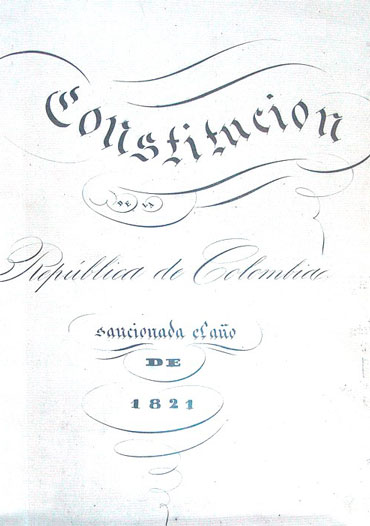 Constitucion
de la
República de Colombia
sancionada el año
DE
1821